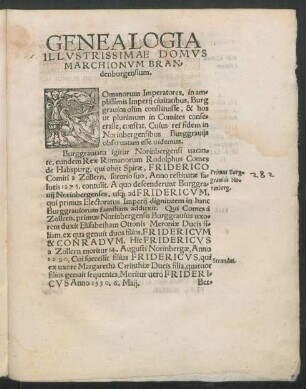 GENEALOGIA
ILLVSTRISSIMAE DOMVS
MARCHIONVM BRAN,
denburgensium.
ROmanorum Imperatores, in am
plissimis Imperij ciuitatibus, Burg
grauios olim constituisse, & hos
ut plurimum in Comites conses
, constat. Cuius res fidem in
Norinbergensibus Burggrauijs
obseruatam esse uidemus.
Burggrauium igitur Norinbergensi uacan
te, eundem Rex Romanorum Rodolphus Comes
de Habspurg, qui obijt Spiræ, FRIDERICO
Comiti à Zollern, sororio suo, Anno restitutæ sa
lutis 1273. contulit. A quo descenderunt Burggra
uij Norinbergenses, usq; ad FRIDERICVM,
qui primus Electoratus Imperij dignitatem in hanc
Burggrauiorum familiam adduxit. Qui Comes à
Zollern, primus Norinbergensis Burggrauius uxo
rem duxit Elisabetham Ottonis Meraniæ Ducis fi
liam, ex qua genuit duos filios, FRIDERICVM
& CONRADVM. Hic FRIDERICVS
à Zollern moritur 14. Augusti Norinbergæ, Anno
1290. Cui successit filius FRIDERICVS, qui
ex uxore Margaretha Carinthiæ Ducis filia, quatuor
filios genuit sequentes, Moritur uero FRIDERI
CVS Anno 1330. 6. Maij.
Ber-
Primus Burg
grauius No
rinberg.
282
Secundus.